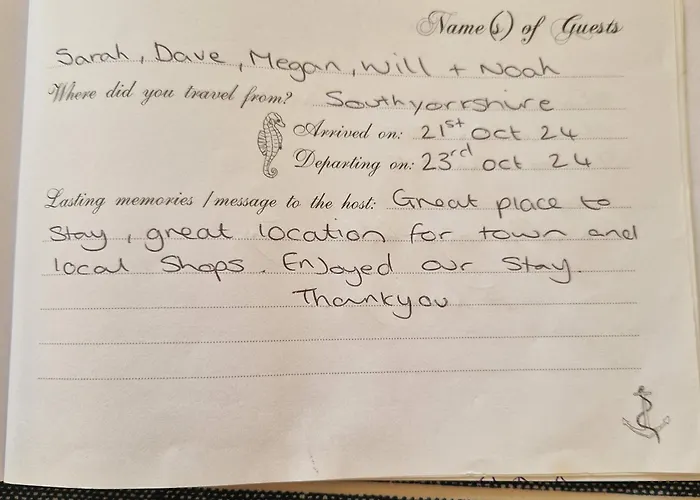 Name(s) of Guests
Sarah, Dave, Megan, Will + Noah
Where did you travel from? Southyorkshire
Arrived on: 21st Oct 24
Departing on: 23rd Oct 24
Lasting memories / message to the host: Great place to
Stay, great location for town and
local Shops. Enjoyed our Stay.
Thankyou